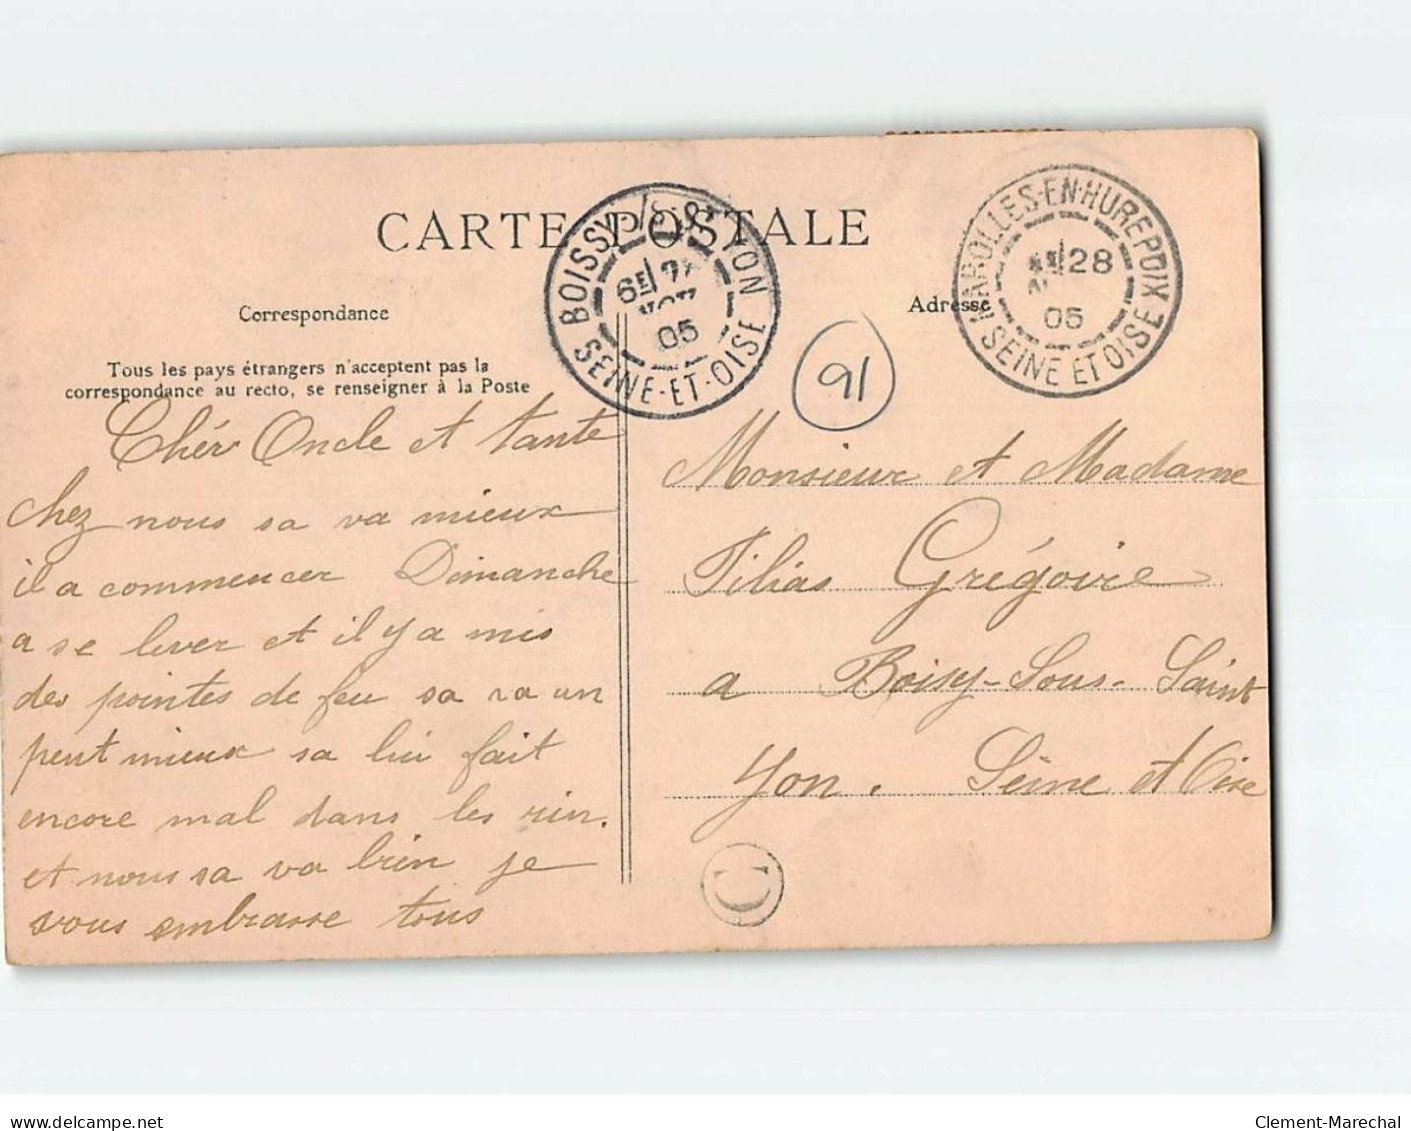 CARTE POSTALE
BOISSY-/S-ST-YON
6E
05
SEINE-ET-OISE
MAROLLES-EN-HUREPOIX
28
05
SEINE ET OISE
Correspondance
Adresse
Tous les pays étrangers n'acceptent pas la
correspondance au recto, se renseigner à la Poste
91
Chér Oncle et tante
chez nous sa va mieux
il a commencer Dimanche
a se lever et il y a mis
des pointes de feu sa va un
peut mieux sa lui fait
encore mal dans les rin.
et nous sa va bien je
vous embrasse tous
Monsieur et Madame
Filias Grégoire
a Boisy-Sous-Saint
Yon. Seine et Oise
C
www.delcampe.net
Clement-Marechal